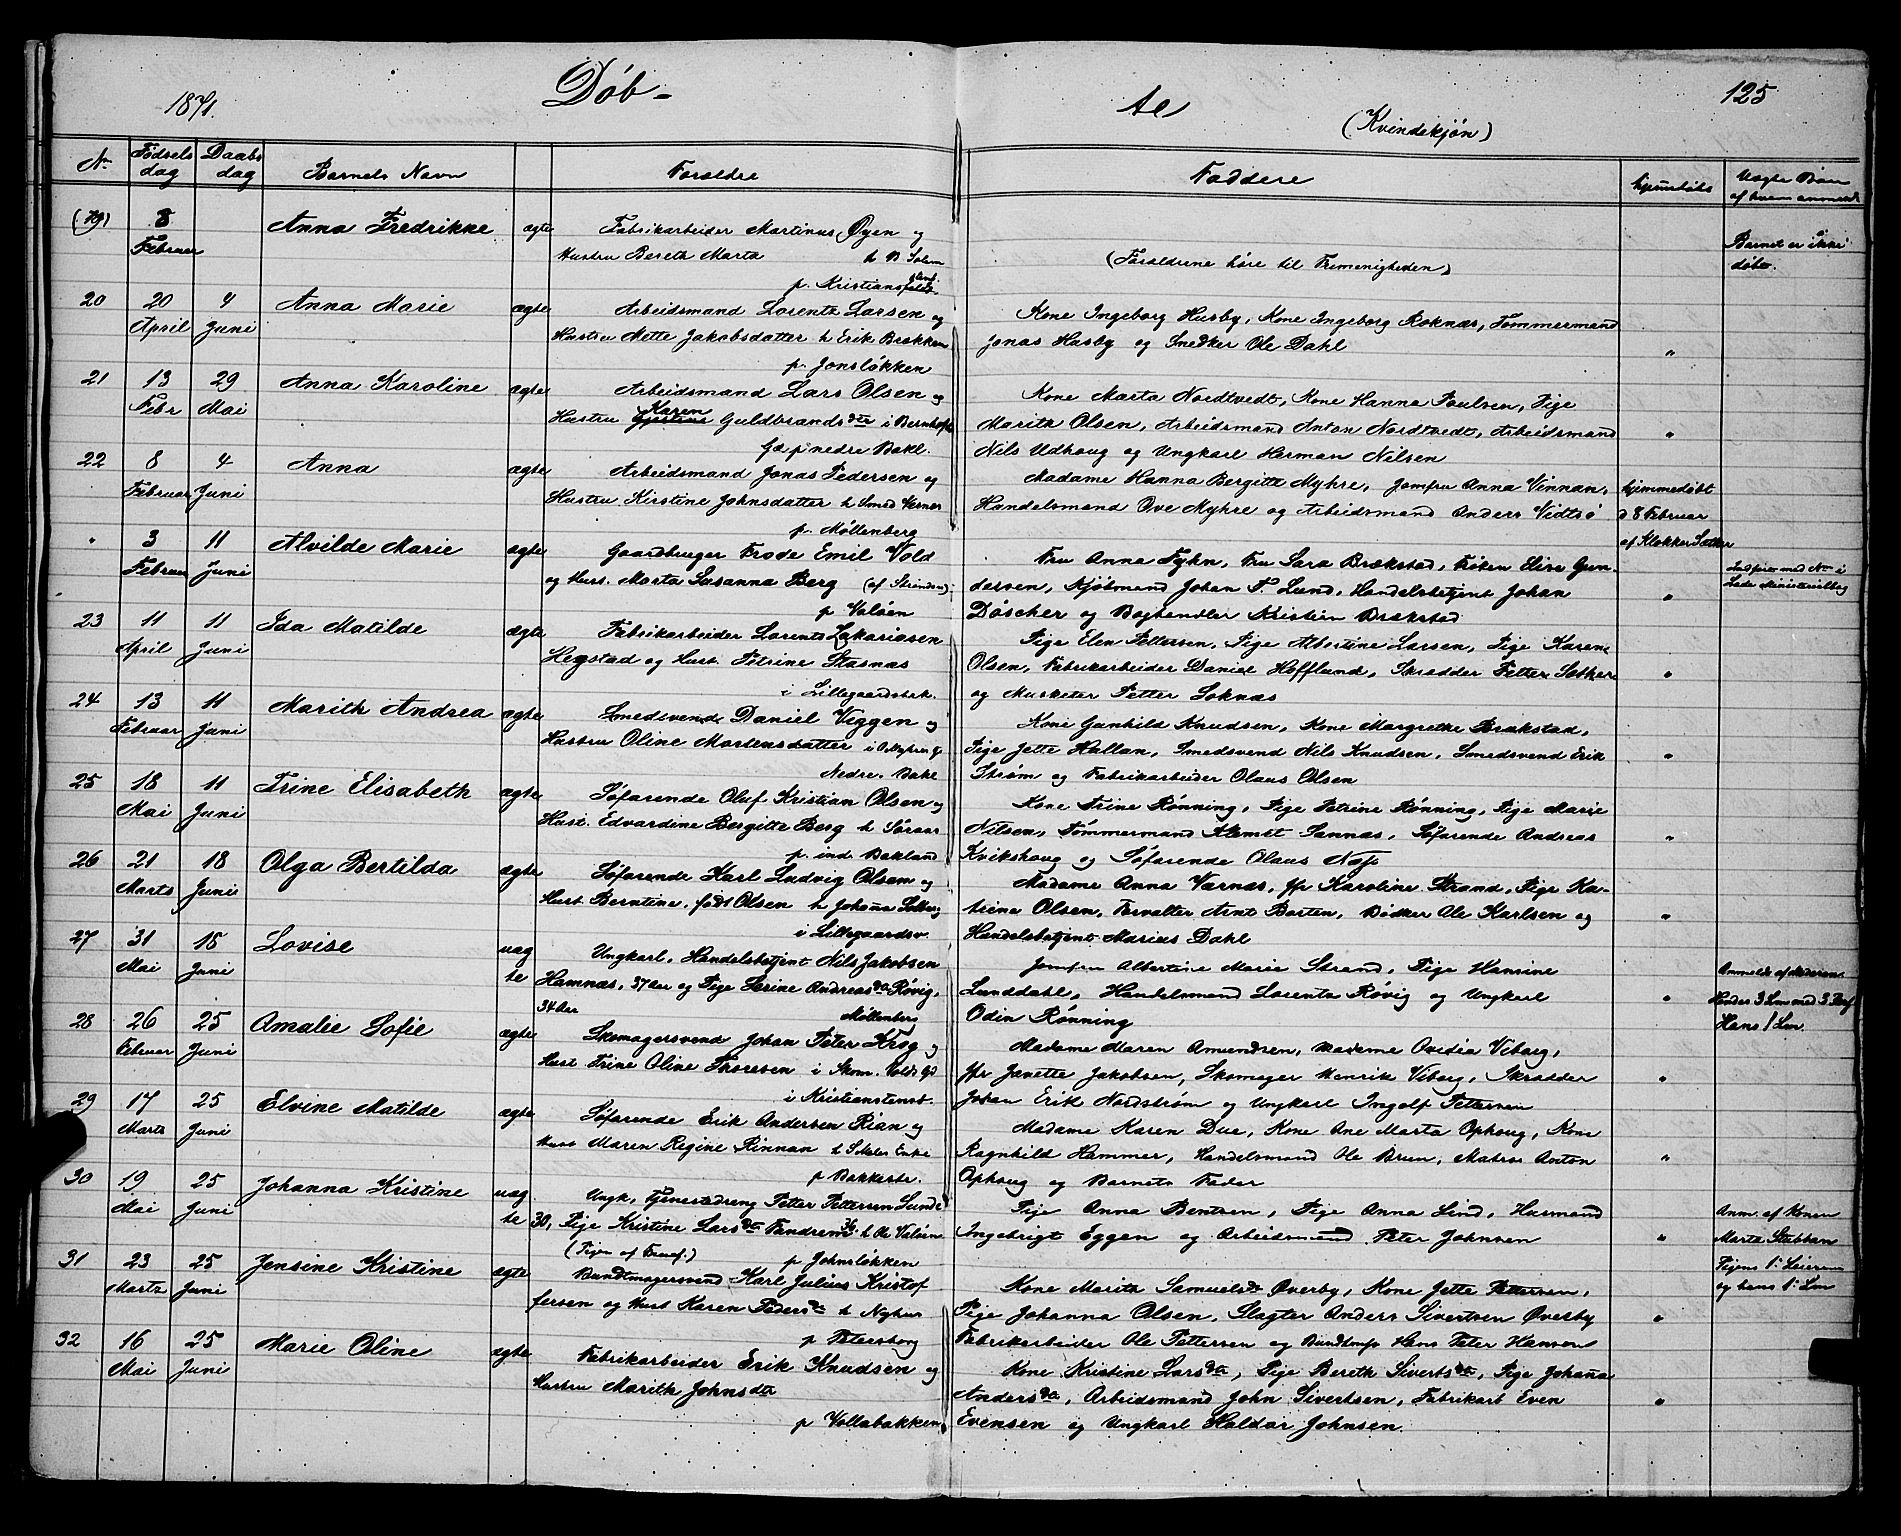 1871. Døb- te 125
(Kvindekjøn)
No Fødsels dag Daabs dag Barnets Navn Forældre Faddere hjemmedøbt Uægte Børn af hvem anmeldt
(19) 8 Februar Anna Fredrikke ægte Fabrikarbeider Martinus Øyen og
Hustru Bereth Marta h B Solem
p. Kristians
(Forældrene høre til Frimenigheden)
Barnet er ikke
døbt.
20 20 April 4 Juni Anna Marie ægte Arbeidsmand Lorents Larsen og
Hustru Mette Jakobsdatter h Erik Brækken
p. Jonsløkken
Kone Ingeborg Husby, Kone Ingeborg Roknæs, Tømmermand
Jonas Husby og Snedker Ole Dahl "
21 13 Febr 29 Mai Anna Karoline ægte Arbeidsmand Lars Olsen og
Hustru Karen Guldbrandsdtr i
Gd p nedre Bakl.
Kone Marta Nordtvedt, Kone Hanna Poulsen, Pige
Marith Olsen, Arbeidsmand Anton Nordtvedt, Arbeidsmand "
Nils Udhoug og Ungkarl Herman Nilsen
22 8 Februar 4 Juni Anna ægte Arbeidsmand Jonas Pedersen og
Hustru Kirstine Johnsdatter h Smed Værnes
p. Møllenberg
Madame Hanna Bergitte Myhre, Jomfru Anna Vinnan,
Handelsmand Ove Myhre og Arbeidsmand Anders Vidtsø
hjemmedøbt
d 8 Februar
af Klokker Sæther
" 3 Februar 11 Juni Alvilde Marie ægte Gaardbruger Frode Emil Vold
og Hust. Marta Susanna Berg (af Strinden)
p Valøen
Fru Anna Fyhn, Fru Sara Brækstad, Frøken Elise Gun-
dersen, Kjøbmand Johan F. Lund, Handelsbetjent Johan "
Döscher og Boghandler Kristian Brækstad
Indført med No i
Lade Ministerialbog
23 11 April 11 Juni Ida Matilde ægte Fabrikarbeider Lorents Zakariasen
Hegstad og Hust. Petrine Stasnæs
i Lillegaardsbk.
Pige Elen Pettersen, Pige Albertine Larsen, Pige Karen
Olsen, Fabrikarbeider Daniel Hofflund, Skrædder Petter Sæther "
og Musketer Petter Soknæs
24 13 Februar 11 Juni Marith Andrea ægte Smedsvend Daniel Viggen og
Hustru Oline Mortensdatter i
Nedre. Bakl
Kone Gunhild Knudsen, Kone Margrethe Brækstad,
Pige Jette Hallan, Smedsvend Nils Knudsen, Smedsvend Erik "
Strøm og Fabrikarbeider Olaus Olsen
25 18 Mai 11 Juni Trine Elisabeth ægte Søfarende Oluf Kristian Olsen og
Hust. Edvardine Bergitte Berg h
p. ind. Bakland
Kone Trine Rønning, Pige Petrine Rønning, Pige Marie
Nilsen, Tømmermand Sannæs, Søfarende Andreas "
Kvikshoug og Søfarende Olaus Næss
26 21 Marts 18 Juni Olga Bertilda ægte Søfarende Karl Ludvig Olsen og
Hust Berntine, født Olsen h Johana Solberg
i Lillegaardsv.
Madame Anna Værnæs, Jfr Karoline Strand, Pige Ka-
trine Olsen, Forvalter Arnt Borten, Bødker Ole Karlsen og "
Handelsbetjent Marius Dahl
27 31 Mai 15 Juni Lovise uæg te Ungkarl, Handelsbetjent Nils Jakobsen
Hamnæs, 37 Aar og Pige Serine Andreasdtr Røvig,
34 Aar Møllenberg
Jomfru Albertine Marie Strand, Pige Hansine
Lunddahl, Handelsmand Lorents Røvig og Ungkarl "
Odin Rønning
Anmeldt af Moderen
Hendes 3 Lm med 3
Hans 1 Lm.
28 26 Februar 25 Juni Amalie Sofie ægte Skomagersvend Johan Peter Krog og
Hust Trine Oline Thoresen i Skom. Volds Gd
i Kristianstensb.
Madame Maren Amundsen, Madame Ovidia Viborg,
Jfr Janette Jakobsen, Skomager Henrik Viborg, Skrædder "
Johan Erik Nordstrøm og Ungkarl Ingolf Pettersen
29 17 Marts 25 Juni Elvine Matilde ægte Søfarende Erik Andersen Rian og
Hust Maren Regine Rinnan h Enke
p Bakkestr.
Madame Karen Due, Kone Ane Marta Ophoug, Kone
Ragnhild Hammer, Handelsmand Ole Brun, Matros Anton "
Ophoug og Barnets Fader
30 19 Mai 25 Juni Johanna Kristine uæg te Ungk, Tjenestedreng Petter Pettersen Lunde
30, Pige Kristine Larsdtr Tandrem 36 h Ole Valøen
p Johnsløkken
Pige Anna Bentsen, Pige Anna Lind, Husmand
Ingebrigt Eggen og Arbeidsmand Peter Johnsen "
Anm. af Konen
Marta Stubban
Pigens 1ste Leierm
og hans 1ste Lm
31 23 Marts 25 Juni Jensine Kristine ægte Bundtmagersvend Karl Julius Kristof
fersen og Hust Karen Pedersdtr h Nyhus
p Petersborg
Kone Marith Samuelsdtr Øverby, Kone Jette Pettersen,
Pige Johanna Olsen, Slagter Anders Sivertsen Øverby "
Fabrikarbeider Ole Pettersen og Bundtmgs Hans Peter Hanson
32 16 Mai 25 Juni Marie Oline ægte Fabrikarbeider Erik Knudsen og
Hustru Marith Johnsdtr
p Vollabakken
Kone Kristine Larsdtr, Pige Bereth Sivertsdtr, Pige Johana
Andersdtr, Arbeidsmand John Sivertsen, Fabrikarb Even "
Evensen og Ungkarl Haldor Johnsen.